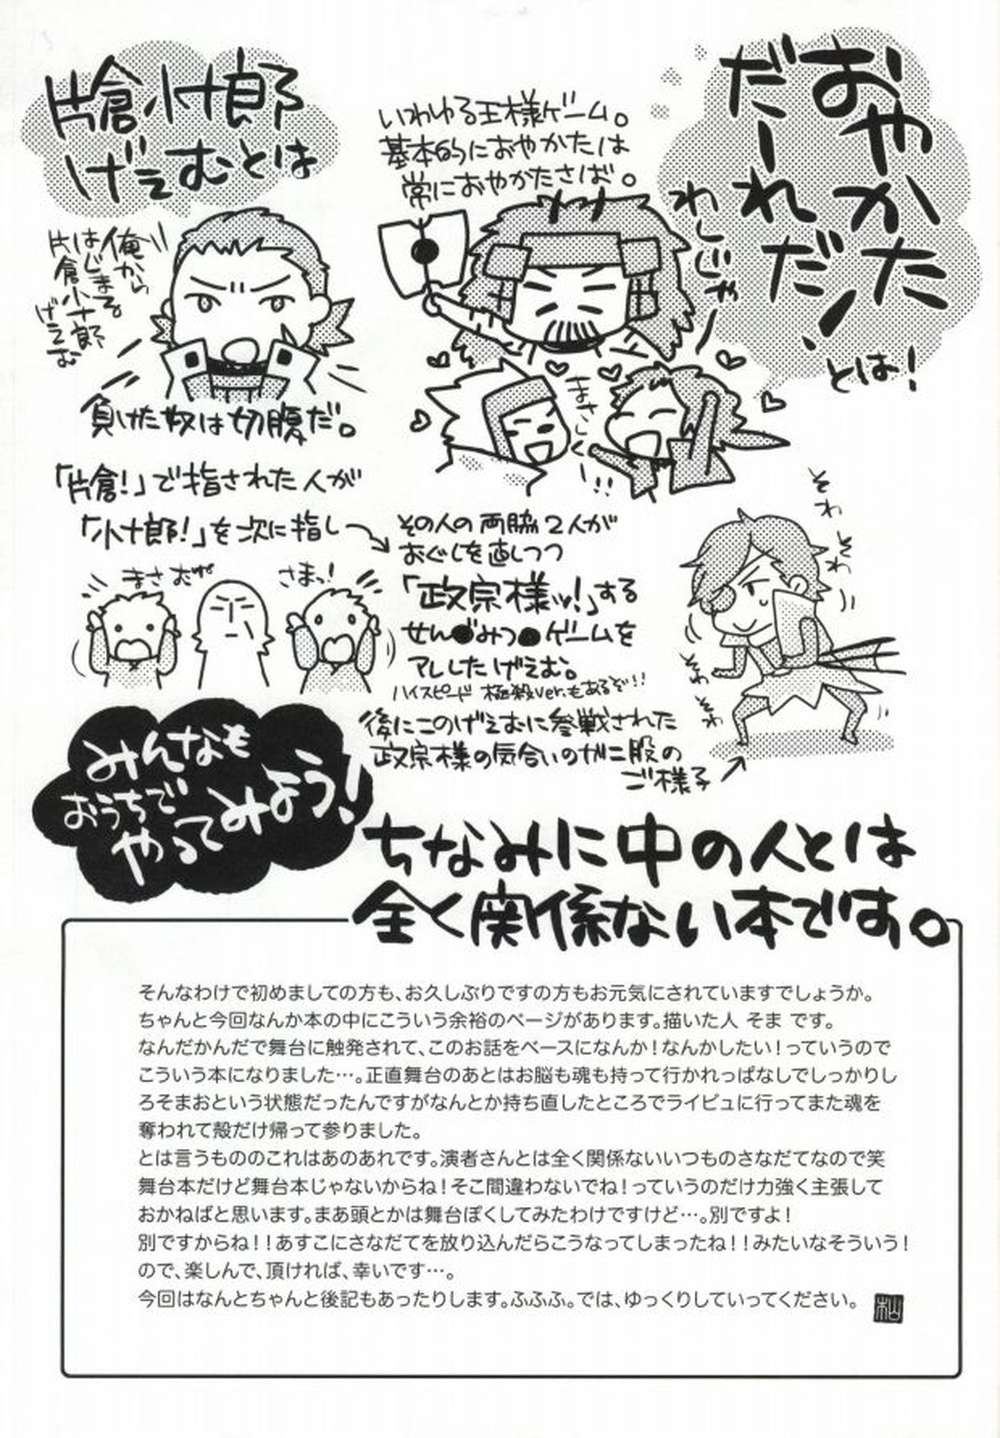 おやかた
だーれだ!
とは!
いわゆる王様ゲーム。
基本的におやかたは
常におやかたさば。
わしじゃー
まさしくー!!
片倉小十郎
げえむとは
俺から
はじまる。
片倉小十郎
げえむ
負けた奴は切腹だ。
「片倉!」で指された人が
「小十郎!」を次に指し
その人の両脇2人が
おぐしを直しつつ
「政宗様ッ!」する
せん●みつ●ゲームを
アレしたげえむ。
ハイスピード 極殺ver.もあるぞ!!
まさむね
さまっ!
後にこのげえむに参戦された
政宗様の気合いのガニ股の
ご様子
そわ
そわ
そわ
そわ
そわ
みんなも
おうちで
やってみよう!
ちなみに中の人とは
全く関係ない本です。
そんなわけで初めましての方も、お久しぶりですの方もお元気にされていますでしょうか。
ちゃんと今回なんか本の中にこういう余裕のページがあります。描いた人 そま です。
なんだかんだで舞台に触発されて、このお話をベースになんか!なんかしたい!っていうので
こういう本になりました…。正直舞台のあとはお脳も魂も持って行かれっぱなしでしっかりし
ろそまおという状態だったんですがなんとか持ち直したところでライビュに行ってまた魂を
奪われて殻だけ帰って参りました。
とは言うもののこれはあのあれです。演者さんとは全く関係ないいつものさなだてなので笑
舞台本だけど舞台本じゃないからね!そこ間違わないでね!っていうのだけ力強く主張して
おかねばと思います。まあ頭とかは舞台ぽくしてみたわけですけど…。別ですよ!
別ですからね!!あすこにさなだてを放り込んだらこうなってしまったね!!みたいなそういう!
ので、楽しんで、頂ければ、幸いです…。
今回はなんとちゃんと後記もあったりします。ふふふ。では、ゆっくりしていってください。